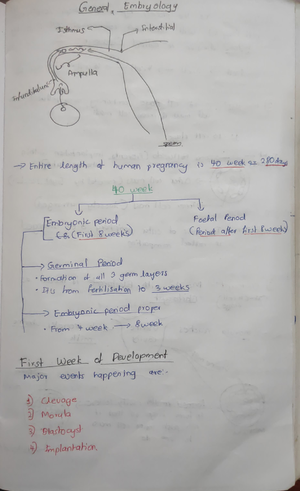 General Embryology
Isthmus
Ampulla
Infundibulum
→ Entire length of human pregnancy is 40 week or 280 days
40 week
Embryonic period
(First 8 weeks)
Foetal Period
(Period after first 8 week)
→ Germinal Period
• Formation of all 3 germ layers
• Its from fertilisation to 3 weeks
→ Embryonic period proper
• From 4 week → 8 week
First Week of Development
Major events happening are -
1) Clevage
2) Morula
3) Blastocyst
4) Implantation